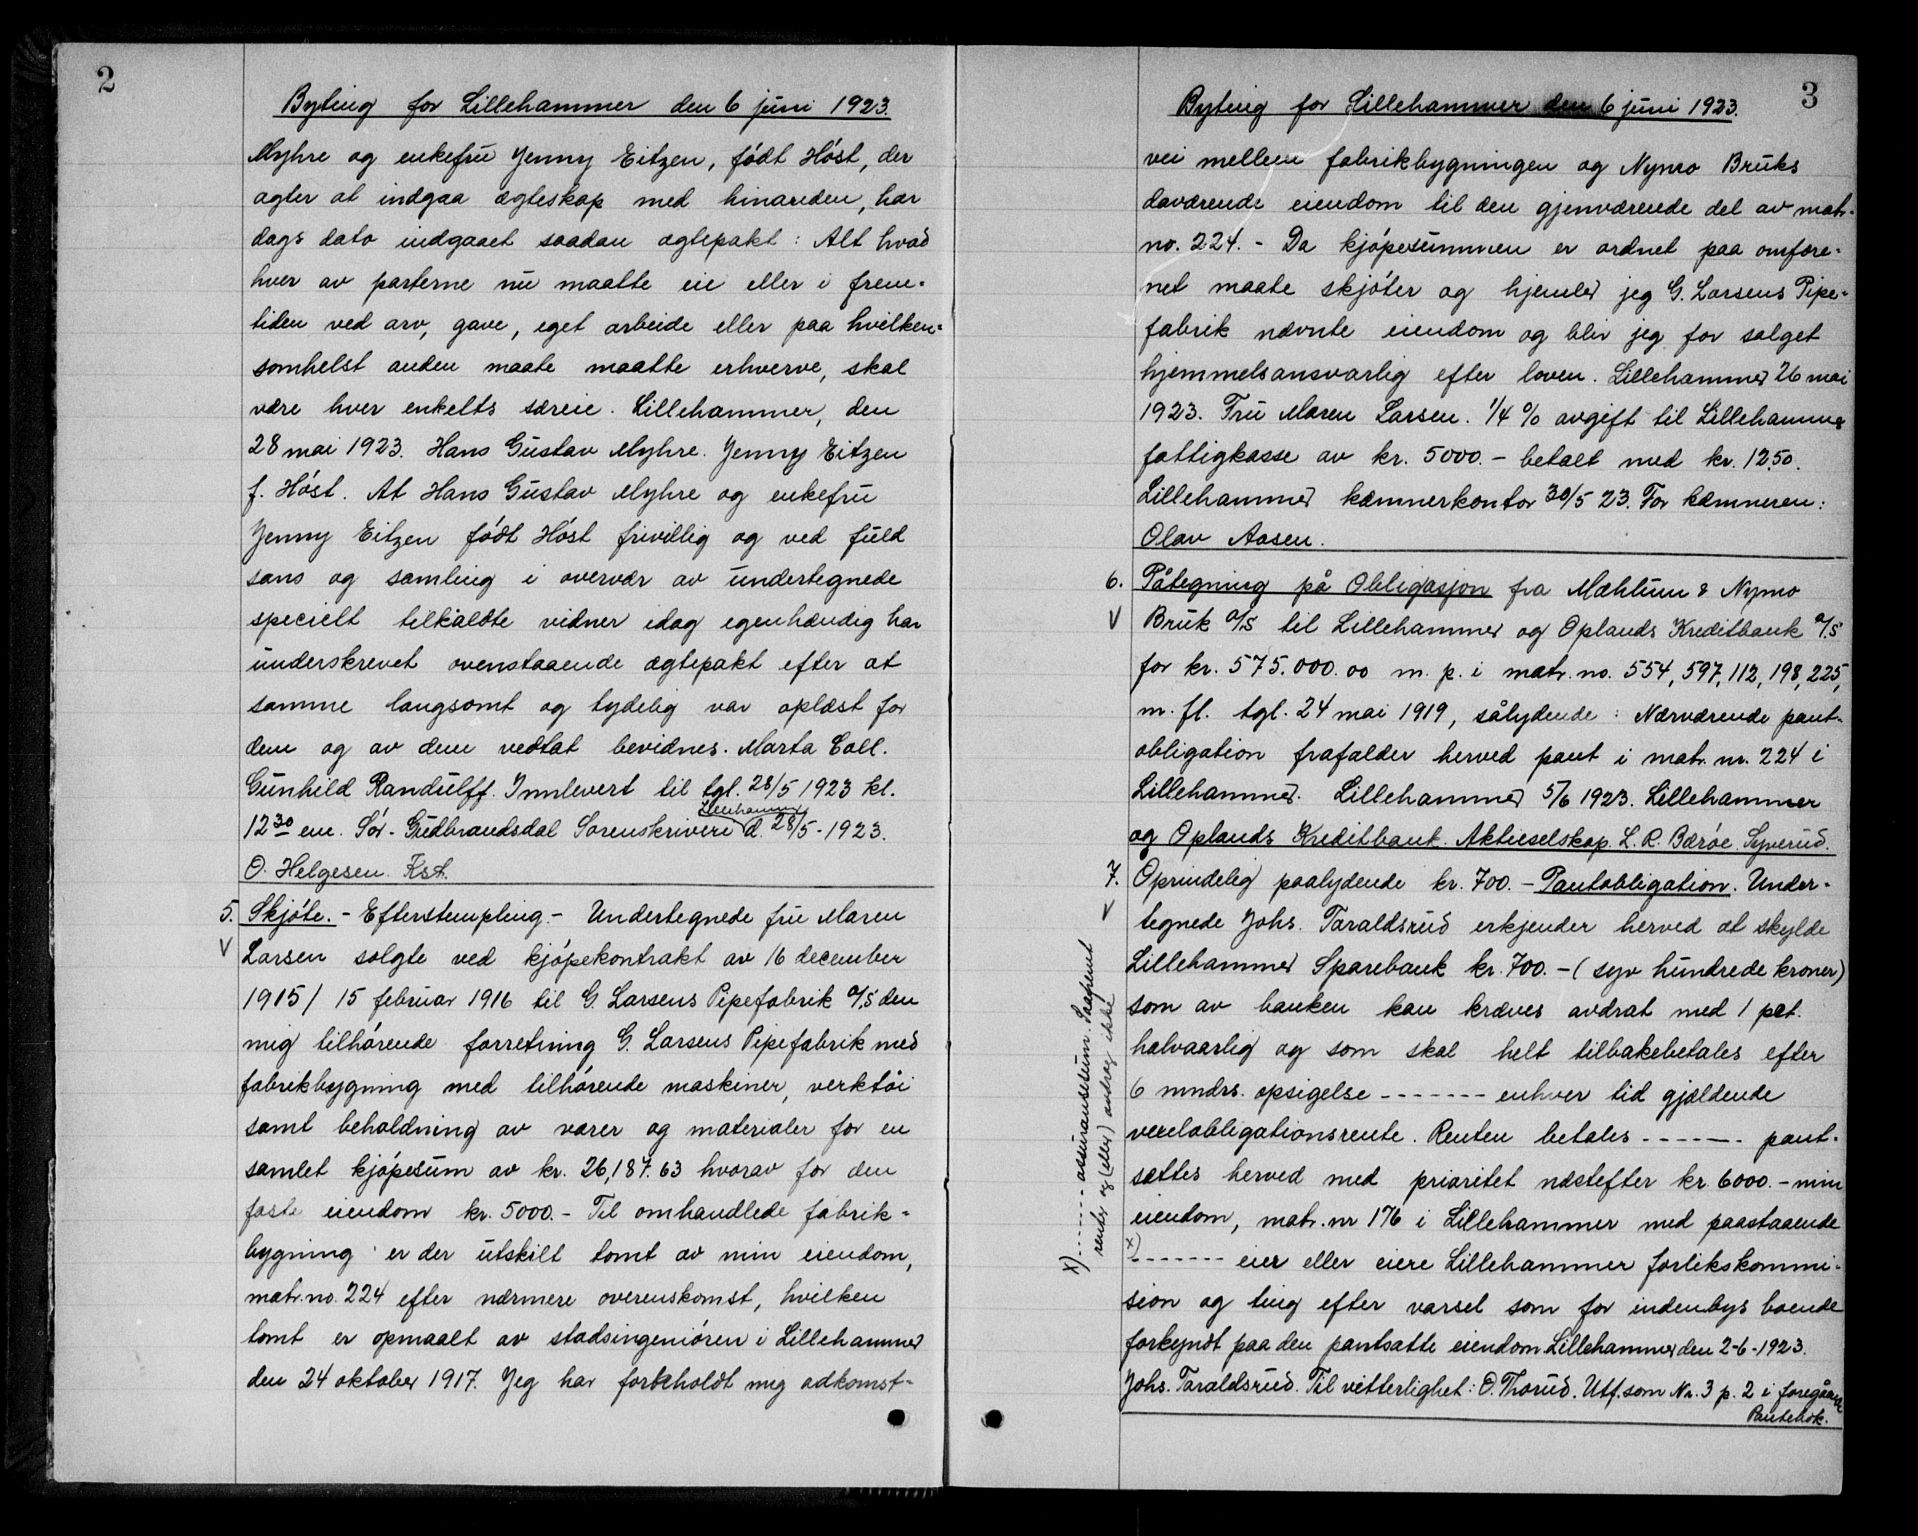 2
Byting for Lillehammer den 6 juni 1923.
Myhre og enkefru Jenny Eitzen, født Høst, der
agter at indgaa ægteskap med hinanden, har
dags dato indgaaet saadan ægtepakt: Alt hvad
hver av parterne nu maatte eie eller i frem-
tiden ved arv, gave, eget arbeide eller paa hvilken-
somhelst anden maate maatte erhverve, skal
være hver enkelts særeie. Lillehammer, den
28 mai 1923. Hans Gustav Myhre. Jenny Eitzen
f. Høst. At Hans Gustav Myhre og enkefru
Jenny Eitzen født Høst frivillig og ved fuld
sans og samling i overvær av undertegnede
specielt tilkaldte vidner idag egenhændig har
underskrevet ovenstaaende ægtepakt efter at
samme langsomt og tydelig var oplæst for
dem og av dem vedtat bevidnes. Marta Coll.
Gunhild Randulff. Innlevert til tgl. 28/5 1923 kl.
12 30 em. Sør-Gudbrandsdal Sorenskriveri Lillehammer d. 28/5-1923.
O. Helgesen. Fst.
5. Skjøte. - Efterstempling - Undertegnede fru Maren
V Larsen solgte ved kjøpekontrakt av 16 december
1915/ 15 februar 1916 til G. Larsens Pipefabrik A/S den
mig tilhørende forretning G. Larsens Pipefabrik med
fabrikbygning med tilhørende maskiner, verktøi
samt beholdning av varer og materialer for en
samlet kjøpesum av kr. 26,187.63 hvorav for den
faste eiendom kr. 5000.- Til omhandlede fabrik-
bygning er der utskilt tomt av min eiendom,
matr.no. 224 efter nærmere overenskomst, hvilken
tomt er opmaalt av stadsingeniøren i Lillehammer
den 24 oktober 1917. Jeg har forbeholdt mig adkomst-
3
Byting for Lillehammer den 6 juni 1923.
vei mellem fabrikbygningen og Nymo Bruks
daværende eiendom til den gjenværende del av matr.
no. 224. - Da kjøpesummen er ordnet paa omfore-
net maate skjøter og hjemler jeg G. Larsens Pipe-
fabrik nævnte eiendom og blir jeg for salget
hjemmelsansvarlig efter loven. Lillehammer 26 mai
1923. Fru Maren Larsen. 1/4 % avgift til Lillehammer
fattigkasse av kr. 5000.- betalt med kr. 1250.
Lillehammer kæmnerkontor 30/5 23. For kæmneren:
Olav Aasen.
6. Påtegning på Obligasjon fra Mæhlum & Nymo
V Bruk A/S til Lillehammer og Oplands Kreditbank A/S
for kr. 575.000.00 m. p. i matr. no. 554, 597, 112, 198, 225,
m. fl. tgl. 24 mai 1919, sålydende: Nærværende pant-
obligation frafalder herved pant i matr. nr. 224 i
Lillehammer. Lillehammer 5/6 1923. Lillehammer
og Oplands Kreditbank. Aktieselskap. L. R. Bærøe. Syverud.
7. Oprindelig paalydende kr. 700. - Pantobligation. Under-
V tegnede Johs. Taraldsrud erkjender herved at skylde
Lillehammer Sparebank kr. 700.- (syv hundrede kroner)
som av banken kan kræves avdrat med 1 pct.
halvaarlig og som skal helt tilbakebetales efter
6 mndrs. opsigelse - - - - - - - enhver tid gjældende
vexelobligationsrente. Renten betales - - - - - - pant-
sættes herved med prioritet næstefter kr. 6000. - min
eiendom, matr. nr 176 i Lillehammer med paastaaende
x) - - - - - - - eier eller eiere Lillehammer forlikskommi-
sion og ting efter varsel som for indenbys boende
forkyndt paa den pantsatte eiendom. Lillehammer den 2-6-1923.
Johs. Taraldsrud. Til vitterlighet: O. Thorud. Utf. som Nr. 3 p. 2 i foregående
Pantebok.
x) - - - - - - - assuransesum. Saafremt
renter og (eller) avdrag ikke